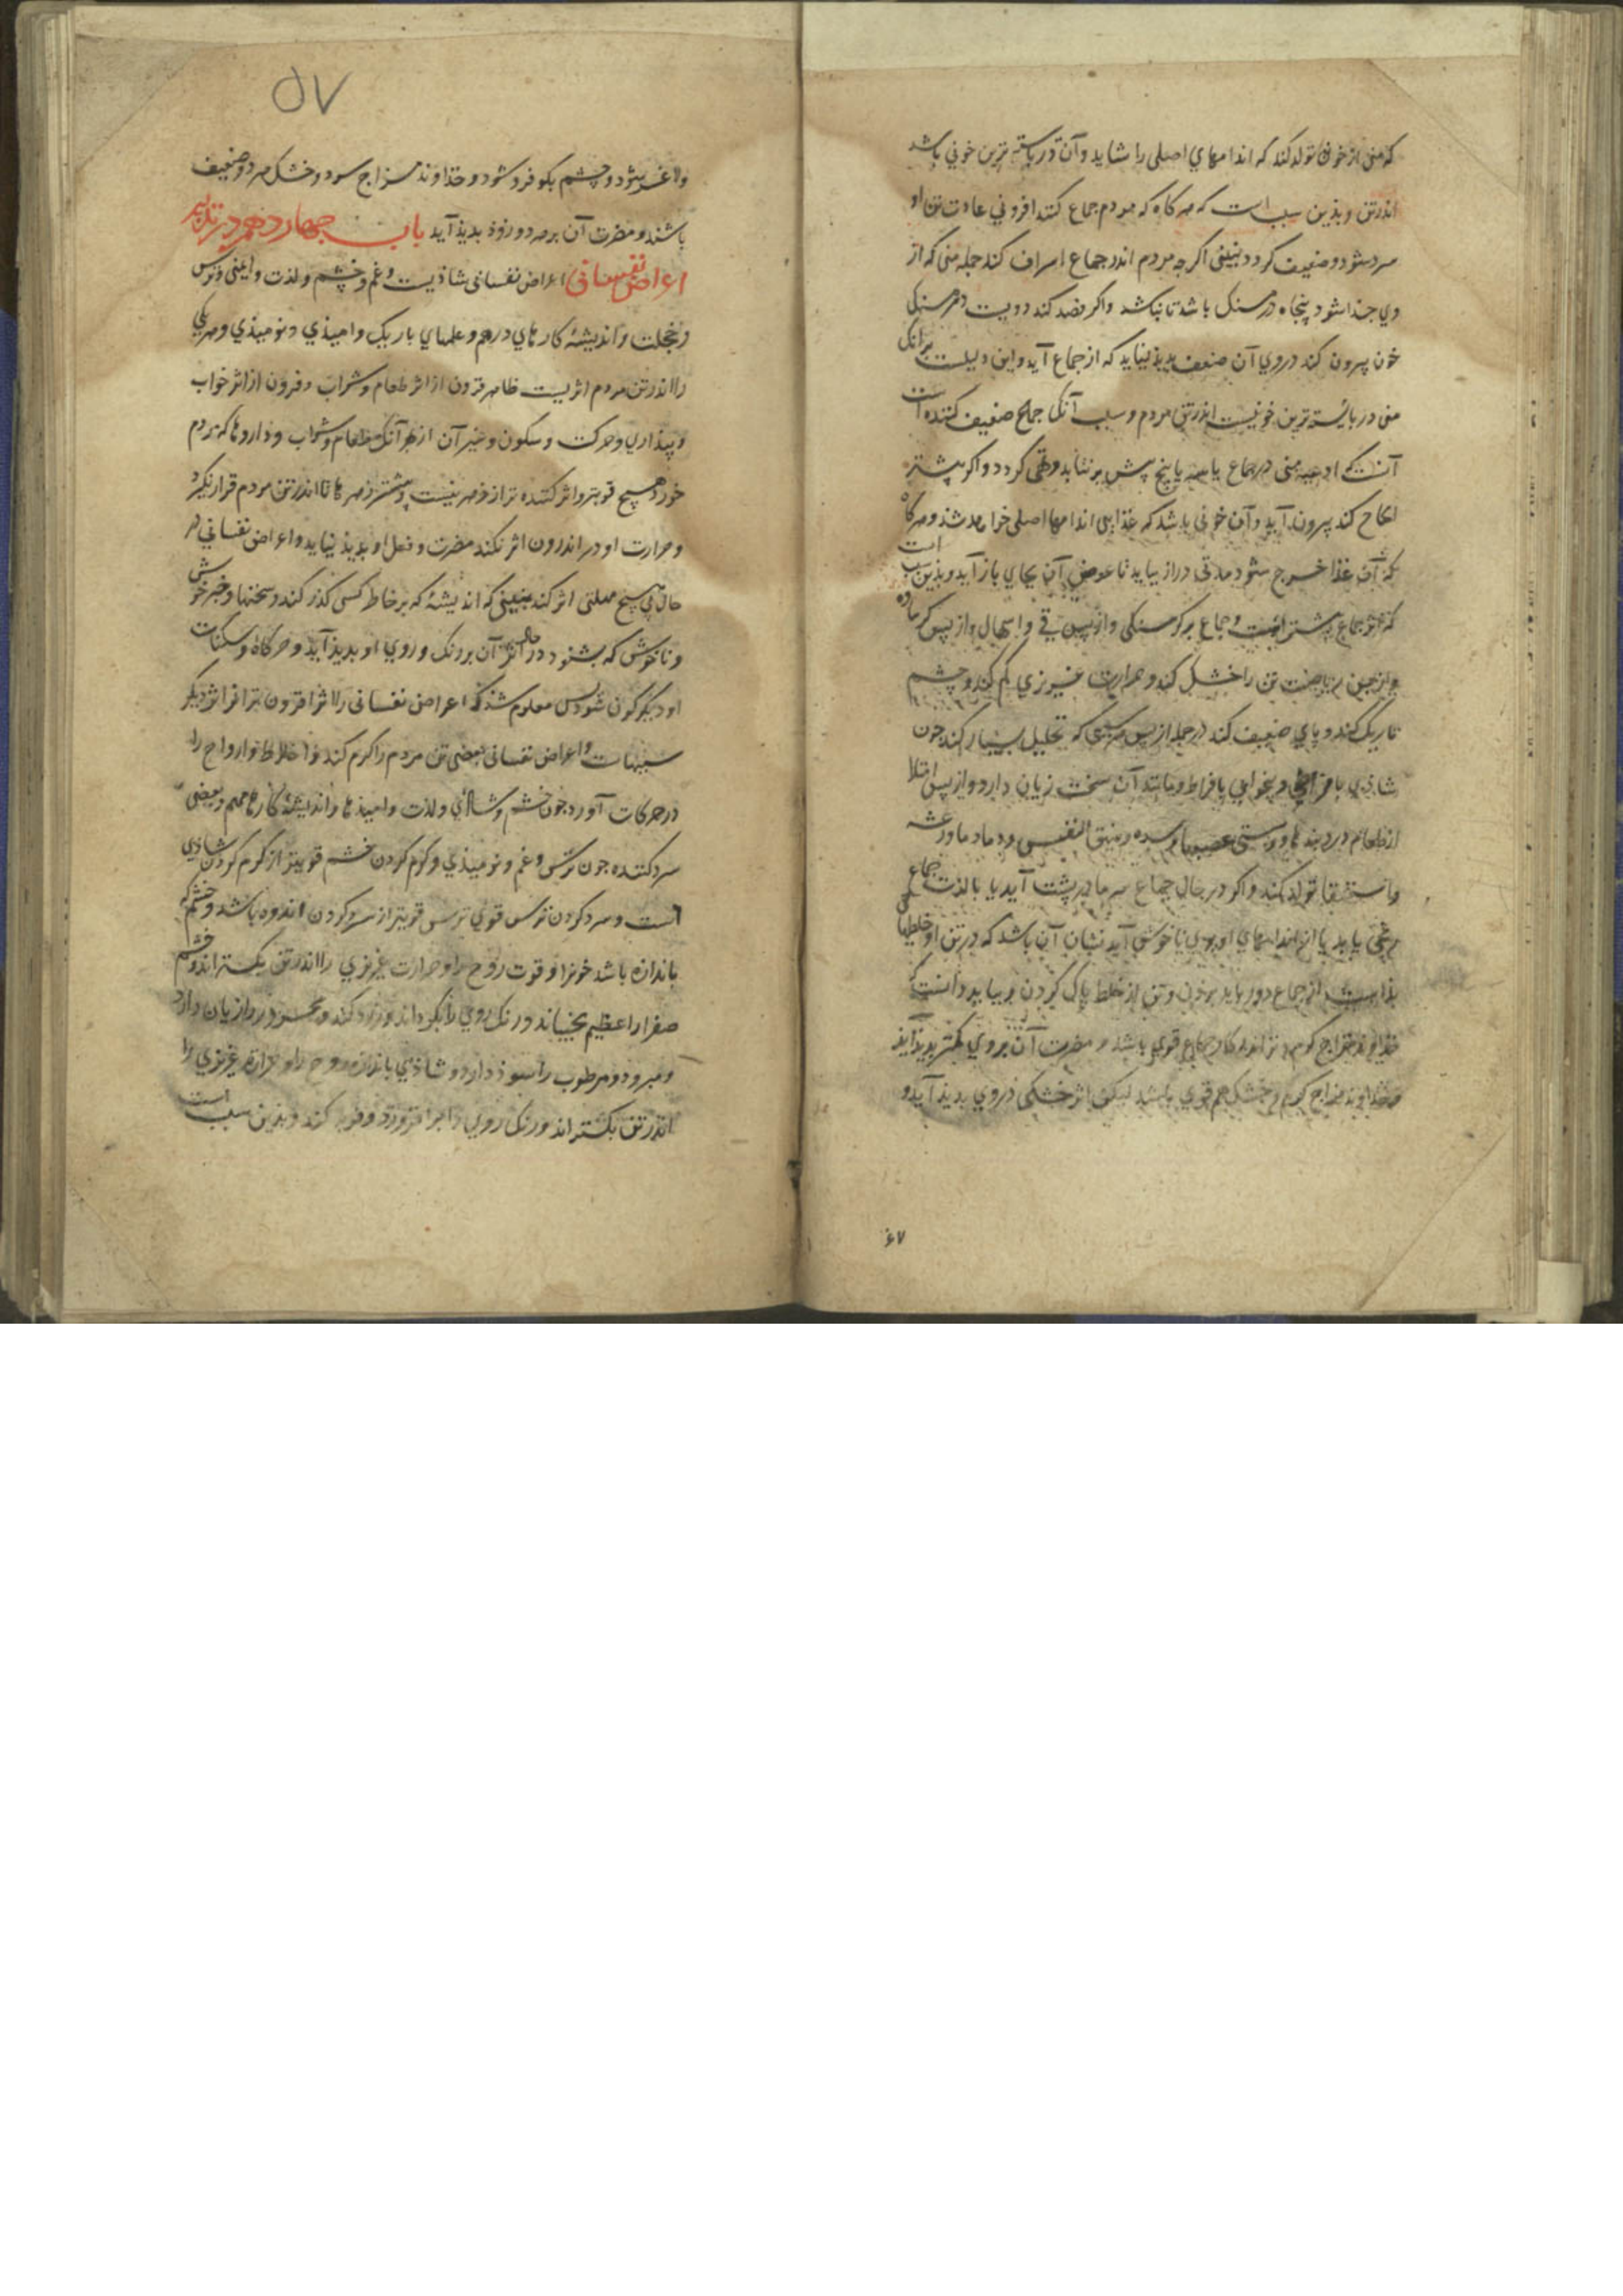 که منی از خون تولد کند که اندامهای اصلی را شاید و آن دربایسته ترین خونی باشد
اندر تن و بذین سبب است که هر کاه که مردم جماع کند افزونی عادت تن او
سرد شود و ضعیف کردد نبینی اکر جه مردم اندر جماع اسراف کند جمله منی که از
وی جدا شود پنجاه درمسنک باشد تا نباشد واکر فصد کند دویست درمسنکی
خون بیرون کند در روی آن ضعف بدیذ نیاید که از جماع آید و این دلیلست برانک
منی دربایسته ترین خونیست اندر تن مردم و سبب آنک جماع ضعیف کننده است
آنست که اوعیه منی در جماع یا سه یا پنج پیش برنیاید و تهی کردد و اکر بیشتر
کند بیرون آید و آن خونی باشد که غذای اندامها اصلی خواهد شذ و هرکاه
که آن غذا خرج شود مدتی دراز بباید تا عوض آن بجای باز آید و بذین سبب است
که اثر جماع بیشتر است و جماع بر کرسنکی و از پس قی و اسهال و از پس کرمابه
و از پس ریاضت تن را خشک کند و حرارت غریزی کم کند و چشم
تاریک کند و پای ضعیف کند در جمله از پس هر چیزی که تحلیل بسیار کند جون
شاذی بافراط و بیخوابی بافراط و مانند آن سخت زیان دارد و از پس امتلا
از طعام درد بندها و سستی عصبها و سده و ضیق النفس و دمادما و رعشه
و استسقا تولد کند و اکر در حال جماع سرما در پشت آید یا با لذت جماع
رنجی یابد یا از اندامهای او بوی ناخوش آید نشان آن باشد که در تن او خلطها
بذ است از جماع دور باید بوذن و تن از خلط پاک کردن و بباید دانست که
خداوند مزاج کرم و تر اندر کار جماع قوی باشد و مضرت آن بروی کمتر بدیذ آید
و خداوند مزاج کرم و خشک هم قوی باشد لیکن اثر خشکی در وی بدیذ آید و
۶۷
۵۷
و لاغر شود و چشم بکو فرو شود و خداوند مزاج سرد و خشک سرد و ضعیف
باشند و مضرت آن بر هر دو زوذ بدیذ آید باب جهاردهم در تدبیر
اعراض نفسانی اعراض نفسانی شاذیست و غم و خشم و لذت و ایمنی و ترس
و خجلت و اندیشه کارهای درهم و علمهای باریک و امیذی و نومیذی و هر یکی
را اندر تن مردم اثریست ظاهر فزون از اثر طعام و شراب و فزون از اثر خواب
و بیذاری و حرکت و سکون و غیر آن از بهر آنک طعام و شراب و داروها که مردم
خورد هیچ قویتر و اثر کننده تر از زهر نیست و بیشتر زهرها تا اندر تن مردم قرار نکیرد
و حرارت او در اندرون اثر نکند مضرت و فعل او بدیذ نیاید و اعراض نفسانی در
حال بی هیچ مهلتی اثر کند نبینی که اندیشه که بر خاطر کسی کذر کند و سخنها و خبر خوش
و ناخوش که بشنود در حال اثر آن بر رنک و روی او بدیذ آید و حرکات و سکنات
او دیکرکون شود پس معلوم شذ که اعراض نفسانی را اثر افزون تر از اثر دیکر
سببهاست و اعراض نفسانی بعضی تن مردم را کرم کند و اخلاط و ارواح را
در حرکات آورد جون خشم و شاذی و لذت و امیذها و اندیشه کارها مهم و بعضی
سرد کننده جون ترس و غم و نومیذی و کرم کردن خشم قویتر از کرم کردن شاذی
است و سرد کردن ترس قوی ترس قویتر از سرد کردن اندوه باشد و خشم که
باندازه باشد خون را و قوت روح را و حرارت غریزی را اندر تن بکستراند و خشم
صفرا را عظیم بجنباند و رنک روی را بکرداند و زرد کند و محرور را زیان دارد
و مبرود و مرطوب را سوذ دارد و شاذی باندازه روح را و حرارة غریزی را
اندر تن بکستراند و رنک روی را برافروزد و فربه کند و بذین سبب است